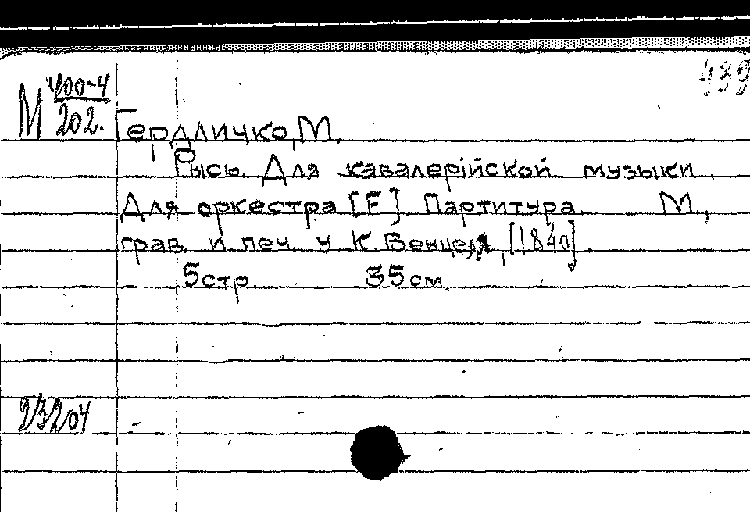 489
М 400-4
202.
Гердличко, М.
Рысь. Для кавалерійской музыки.
Для оркестра [F] Партитура. М.,
грав. и печ. у К. Венцеля, [1840].
5 стр. 35 см.
23204